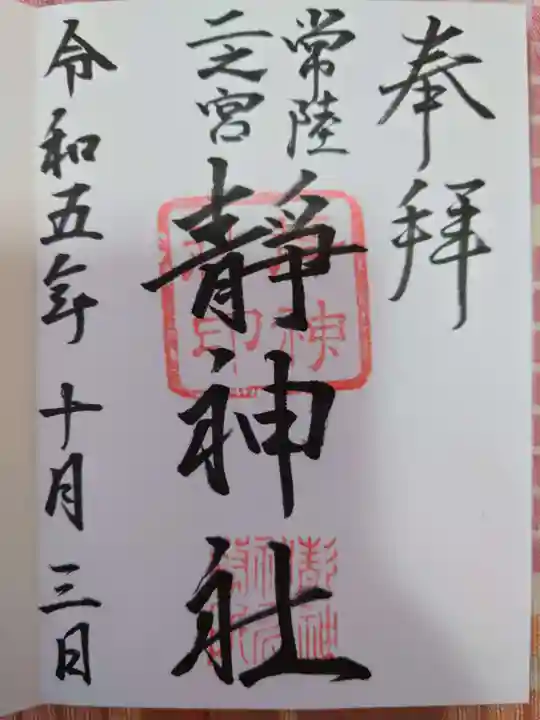 奉拝
常陸
二之宮
靜神社
令和五年 十月 三日